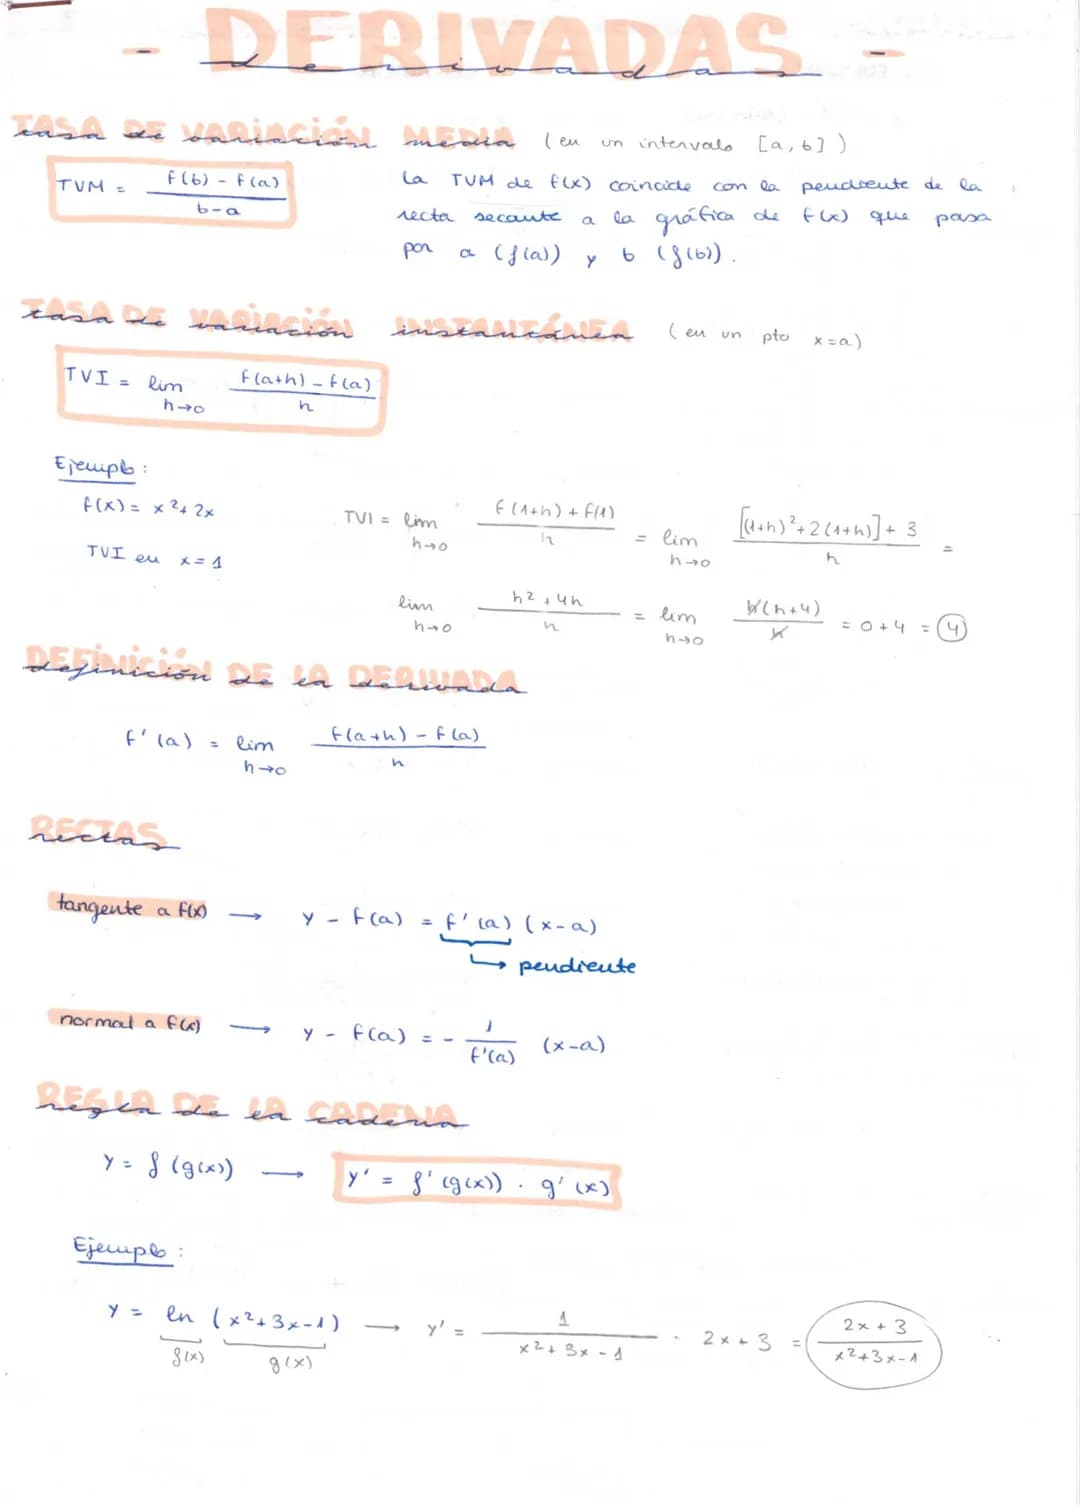 - DERIVADAS -
TASA DE VARIACIÓN MEDIA (en un intervalo [a, b])
TVM = f(b) - f(a) / b-a
La TVM de f(x) coincide con la pendiente de la
recta secante a la gráfica de f(x) que pasa
por a (f(a)) y b (f(b)).
TASA DE VARIACIÓN INSTANTÁNEA (en un pto x=a)
TVI = lim h→0 f(a+h) - f(a) / h
Ejemplo:
f(x) = x²+2x
TVI en x=1
TVI = lim h→0 f(1+h) + f(1) / h = lim h→0 [(1+h)²+2(1+h)] + 3 / h =
lim h→0 h²+4h / h = lim h→0 h(h+4) / h = 0+4 = 4
DEFINICIÓN DE LA DERIVADA
f'(a) = lim h→0 f(a+h) - f(a) / h
RECTAS
tangente a f(x) → y - f(a) = f'(a) (x-a)
↳ pendiente
normal a f(x) → y - f(a) = - 1 / f'(a) (x-a)
REGLA DE LA CADENA
y = f(g(x)) → y' = f'(g(x)) · g'(x)
Ejemplo:
y = ln (x²+3x-1) → y' = 1 / x²+3x-1 · 2x+3 = 2x+3 / x²+3x-1
f(x) g(x)